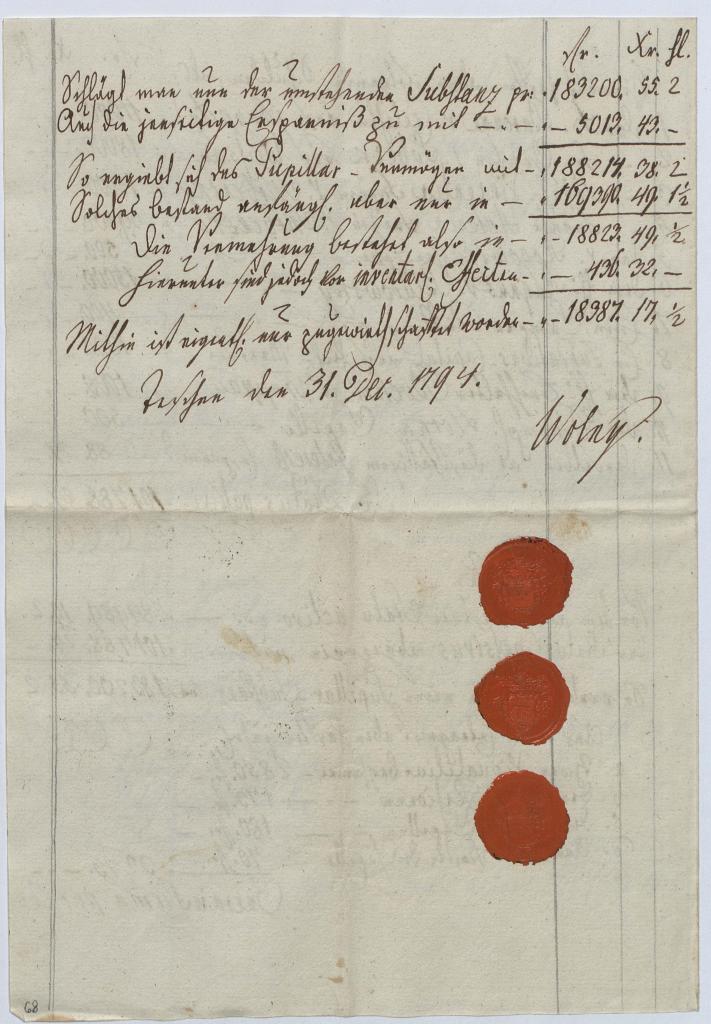 Fr. Xr. hl.
Schlägt man nun der umstehenden Substanz pr: 183200. 55. 2
Auch die jenseitige Ersparniß zu mit — . — 5013. 43. —
So ergiebt sich das Pupillar - Vermögen mit — 188214. 38. 2
Solches bestand anfängl. aber nur in — 169390. 49. 1½
Die Vermehrung bestehet also in — 18823. 49. ½
hierunter sind jedoch vor inventar. Effecten — 436. 32. —
Mithin ist eigentl. nur zugewirthschaftet worden — 18387. 17. ½
Teschen den 31. Dec. 1794.
68